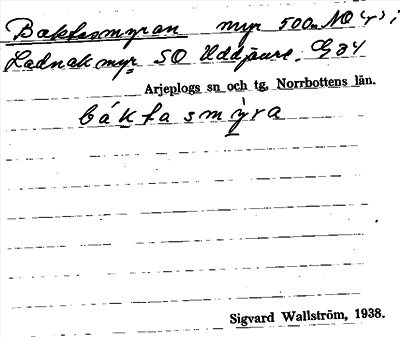 Baktasmyran myr 500m NO (r) i
Ladnakmyr SO Uddjaure. G 34
Arjeplogs sn och tg, Norrbottens län.
báktasmyra
Sigvard Wallström, 1938.